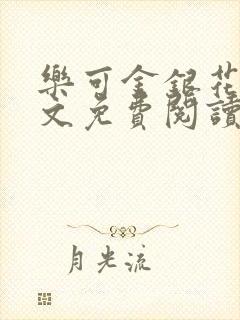 樂可金銀花
文免費閱讀
月光流